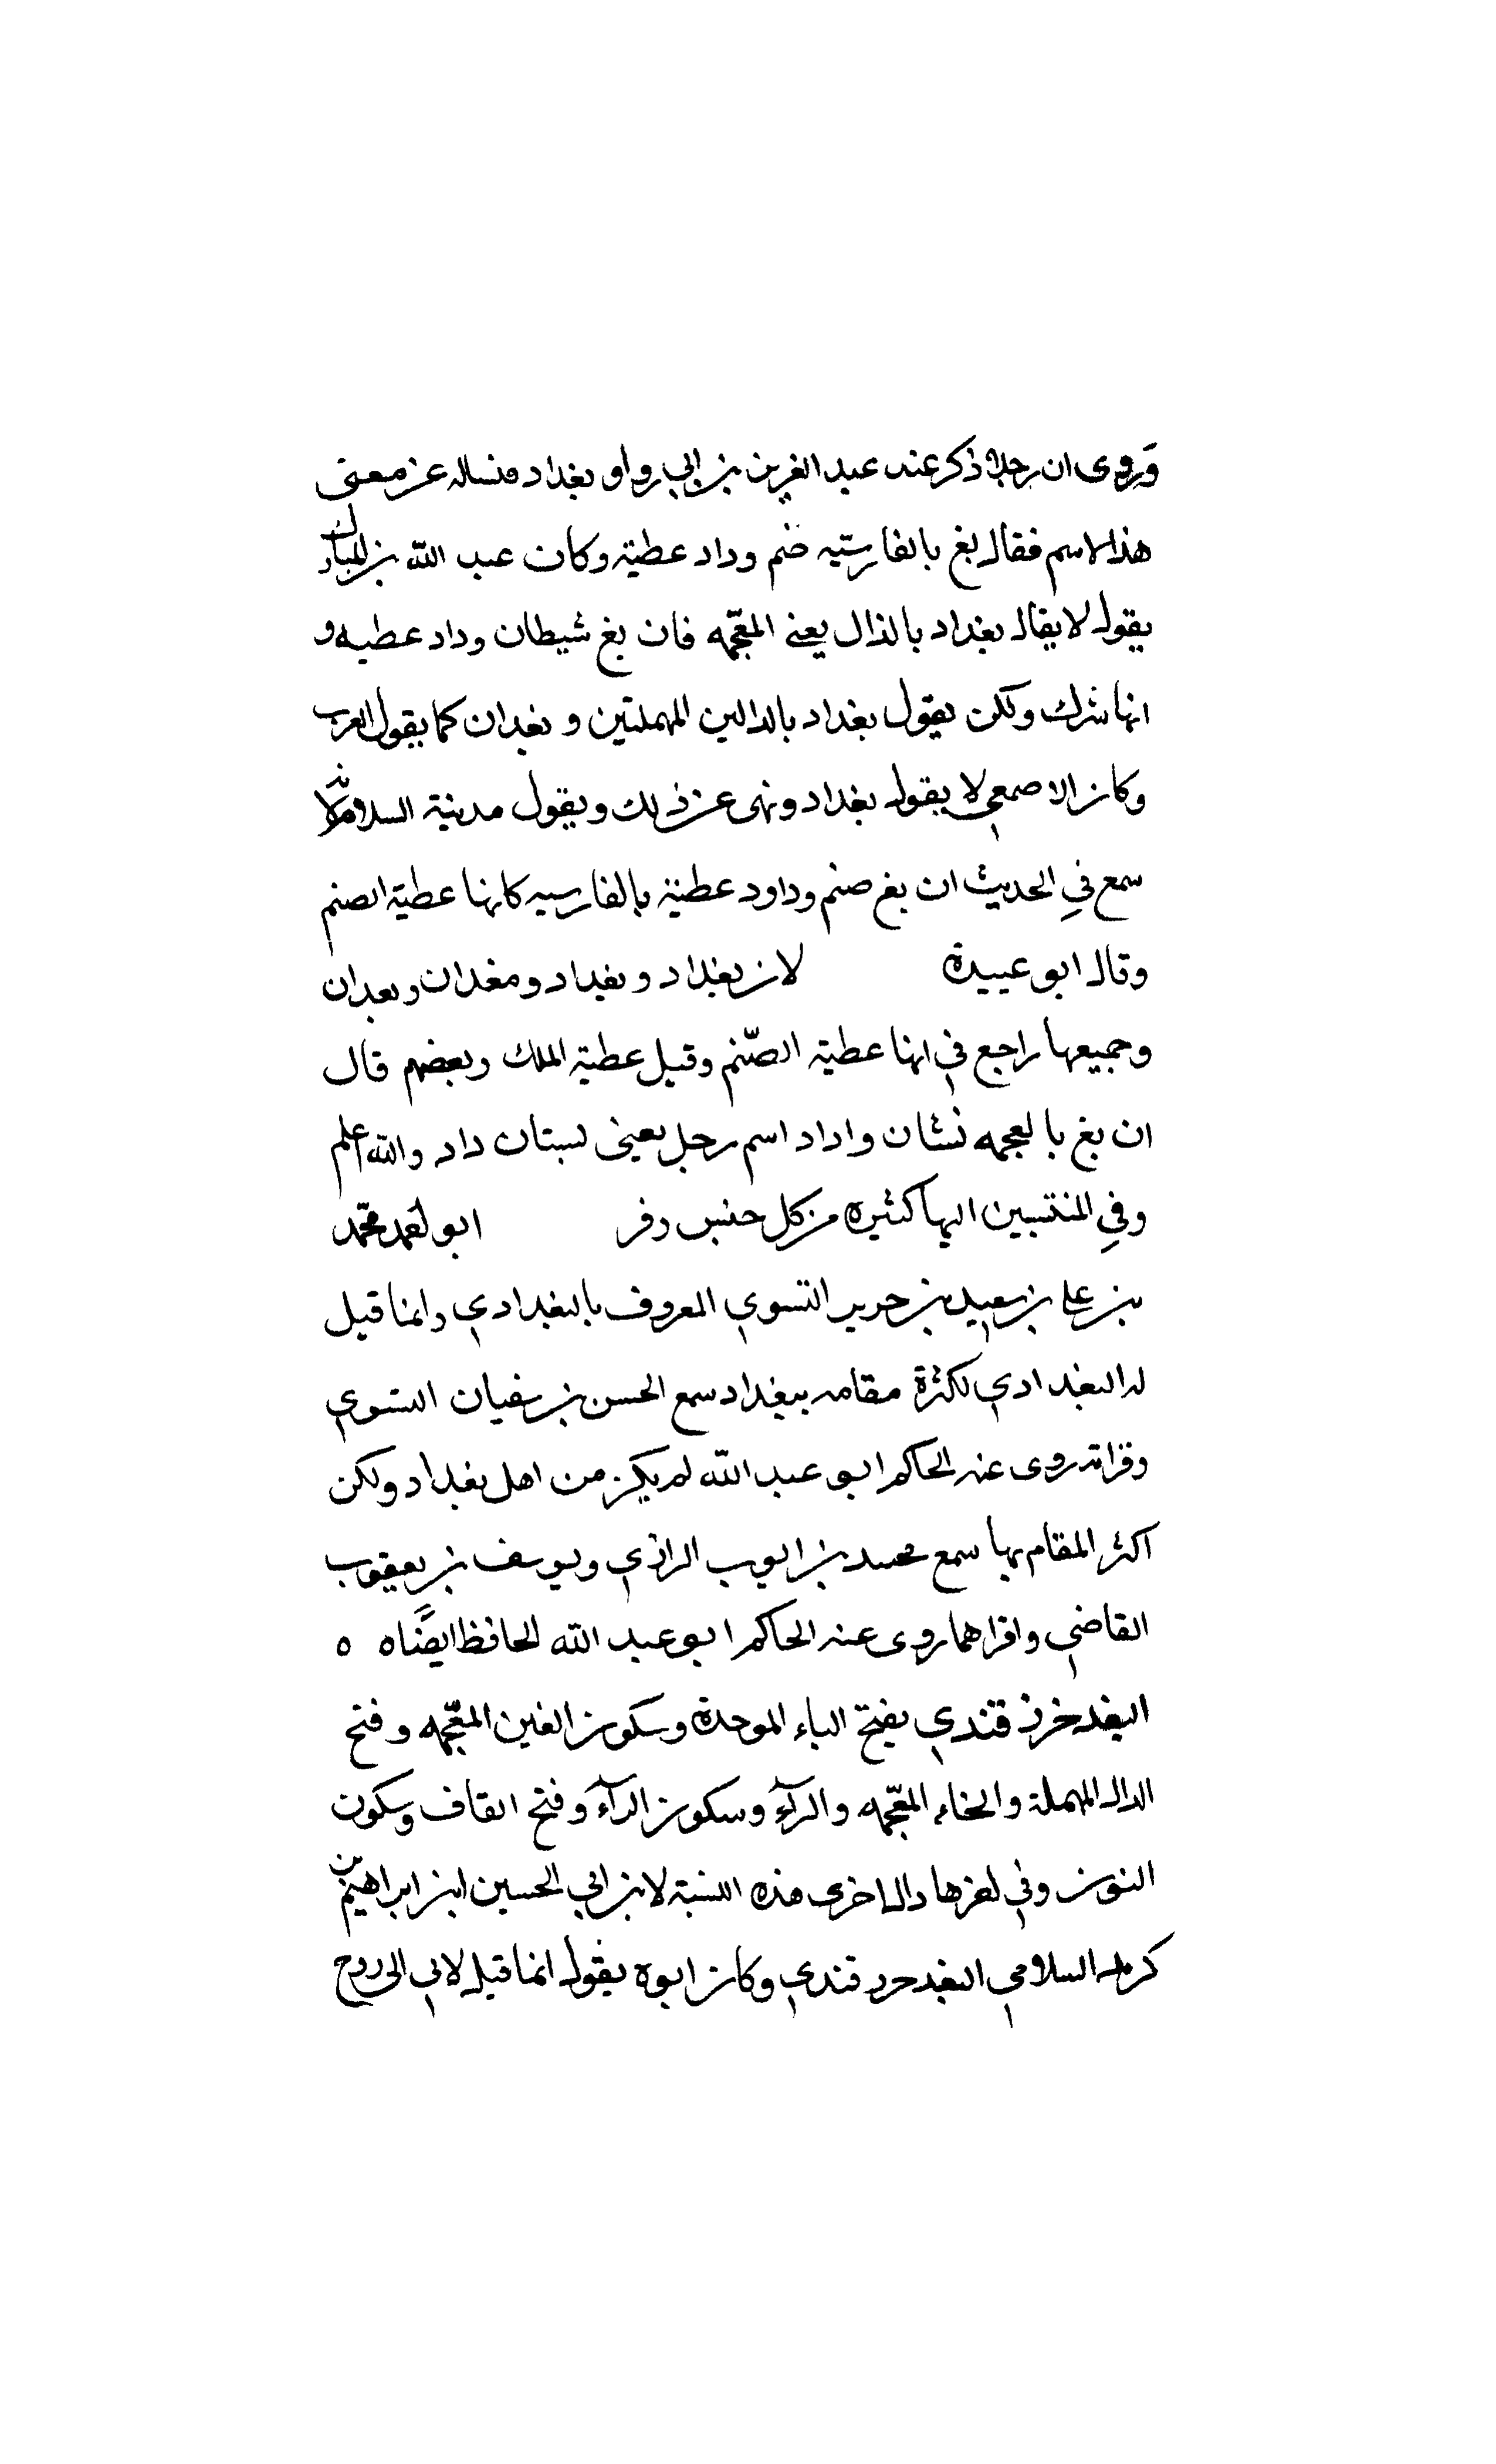 وروى ان رجلا ذكر عند عبد العزيز بن ابي رواو بغداد فساله عن معنى
هذا الاسم فقال بغ بالفارسيّه ضم وداد عطية وكان عبد الله بن المبارك
يقول لا يقال بغداد بالذال يعني المعجّمه فان بغ شيطان وداد عطيه و
انها شرك ولكن يقول بغداد بالدالين المهملتين و بغدان كما يقول العرب
وكان الاصمعي لا يقول بغداد ونهى عن ذلك ويقول مدينة السلام لانه
سمع في الحديث ان بغ صنم وداود عطية بالفارسيه كانها عطية الصنم
وقال ابو عبيدة لان بغداد و بغداد و مغدان و بعدان
وجميعها راجع في انها عطية الصّنم وقيل عطية الملك وبعضهم قال
ان بغ بالعجمه نشان واداد اسم رجل يعني لبستان داد والله اعلم
وفي المنتسبين اليها كثيره من كل جنس وفر ابو محمد
بن علي بن سعيد بن جرير النسوي المعروف بالبغدادي وانما قيل
له البغدادي لكثرة مقامه ببغداد سمع الحسن بن سفيان النسوي
وقرانه روى عنه الحاكم ابو عبد الله لم يكن من اهل بغداد ولكن
اكثر المقام بها سمع محمد بن ايوب الرازي ويوسف بن يعقوب
القاضي واقراهما روى عنه الحاكم ابو عبد الله الحافظ ايضًا ه ه
البغد خرز قندي بفتح الباء الموحدة وسكون الغين المعجّمه وفتح
الدال المهملة والخاء المعجّمه والرآء وسكون الرآء وفتح القاف وسكون
النون وفي اخرها دال اخرى هذه النسبة لابن ابي الحسين ابن ابراهيم بن
السلامي البغد خرد قندي وكان ابوه يقول انما قيل لابي الى روح